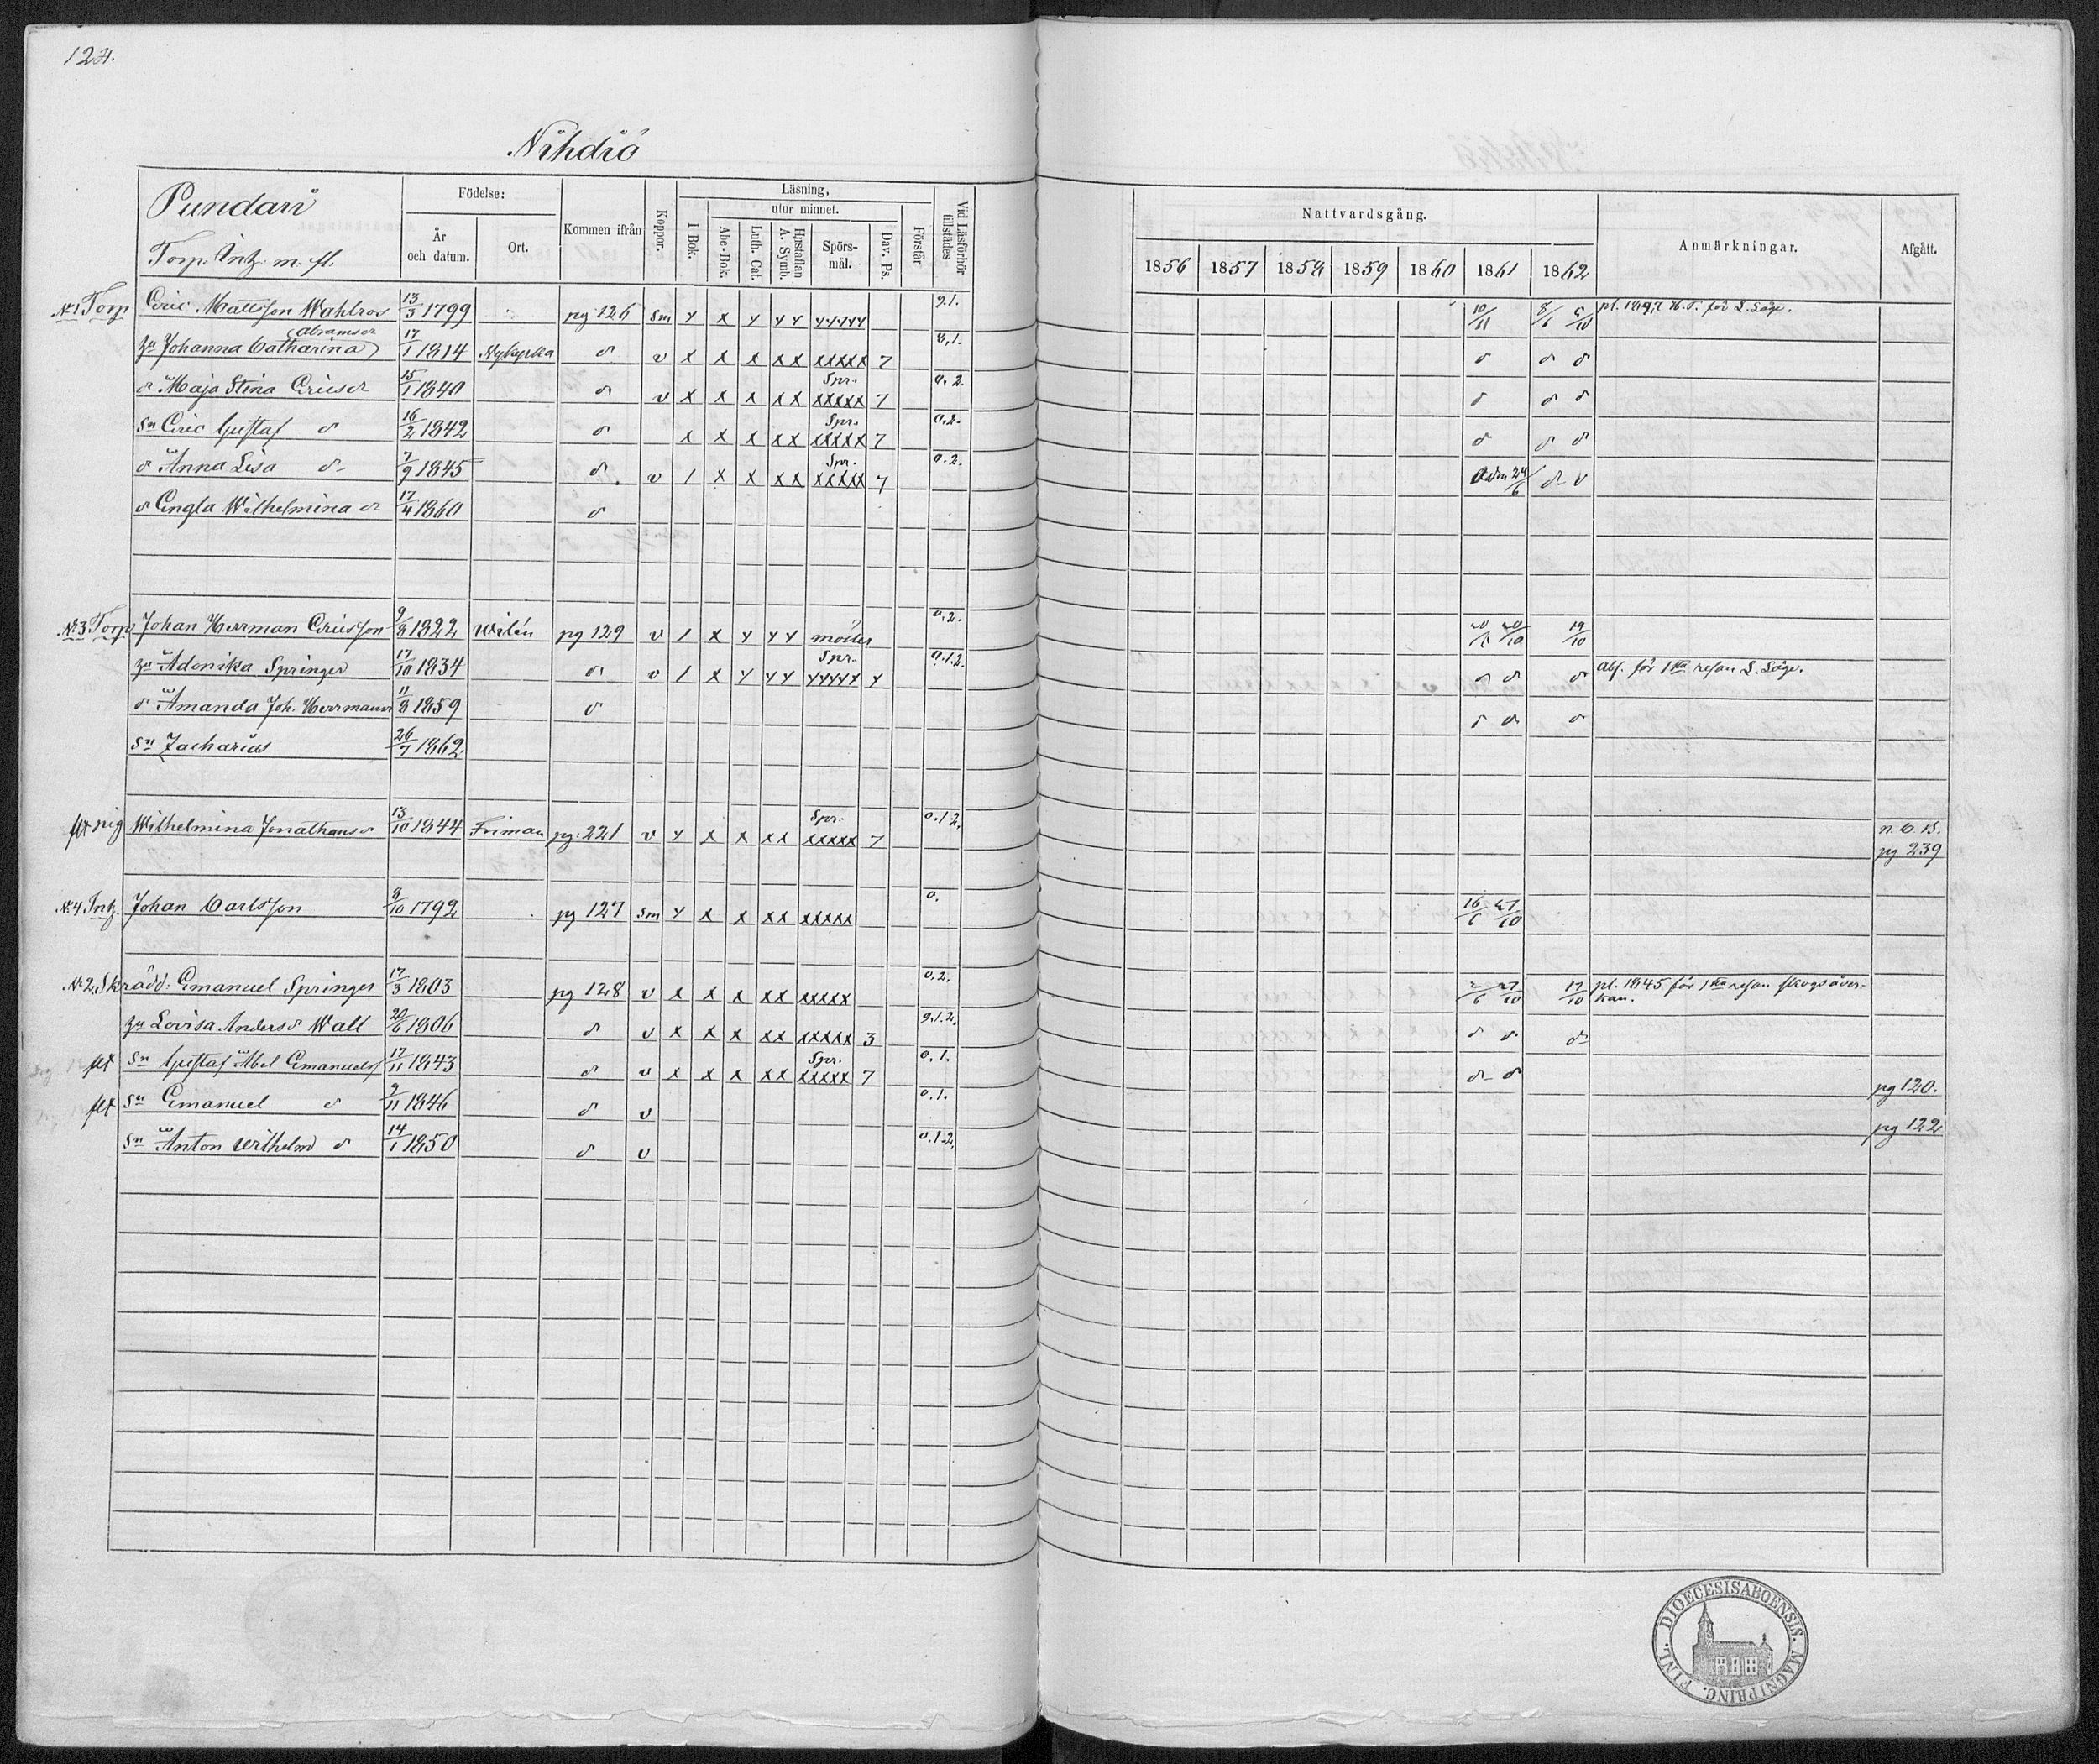 124.
Nihdiö
Pundari
Torp. Intg. m. fl.
Födelse:
År och datum.
Ort.
Kommen ifrån
Koppor.
Läsning,
I Bok.
utur minnet.
Abc-Bok.
Luth. Cat.
Hustaflan A. Symb.
Spörsmål.
Dav. Ps.
Förstår
Vid Läsförhör tillstädes
Nattvardsgång.
1856 1857 1858 1859 1860 1861 1862
Anmärkningar.
Afgått.
N:1 Torp Eric Mattsson Wahlros 13/3 1799 pg 126 sm 9.1. 10/11 8/6 5/10
Abramsdr
Johanna Catharina 17/1 1814 Nykyrka d v x x x xx xxxxx 7 8,1. d d d
d Maja Stina Ericsdr 15/1 1840 d v x x x xx Spr. xxxxx 7 0.2. d d d
Sn Eric Gustaf d 16/2 1842 d x x x xx Spr. xxxxx 7 0.2. d d d
d Anna Lisa d 7/9 1845 d v 1 x x xx Spr. xxxxx 7 0.2. d
d Engla Wilhelmina d 17/4 1860 d
N:3 Torp Johan Herrman Ericsson 9/8 1822 pg 129 v 1 x 0.2. 19/10
Adonika Springer 17/10 1834 d v 1 x Spr. 0.1.2. d d d abs. för 1sta resan L. Läge.
d Amanda Joh. Herrmansdr 11/8 1859 d d d d
Sn Zacharias 26/7 1862.
pig Wilhelmina Jonathansdr 13/10 1844 Friman pg: 221 v x x xx Spr. xxxxx 7 0.1.2. pg 239
N:4 Intg. Johan Carlsson 8/10 1792 pg 127 sm x x xx xxxxx 0. 16/6 27/10
N:2. Skrädd: Emanuel Springer 17/3 1803 pg 128 v x x x xx xxxxx 0.2. 2/6 27/10 19/10 pl. 1845 för 1sta resan skogsåver-
kan.
Lovisa Andersdr Wall 20/6 1806 d v x x x xx xxxxx 3 9.1.2. d d d
flt Sn Gustaf Abel Emanuelsf 17/11 1843 d v x x x xx Spr. xxxxx 7 0.1. d d pg 120.
flt Sn Emanuel d 9/11 1846 d v 0.1. pg 122
Sn Anton Wilhelm d 14/1 1850 d v 0.1.2,
FINL. DIOECESIS ABOENSIS. MAGNI PRINC.